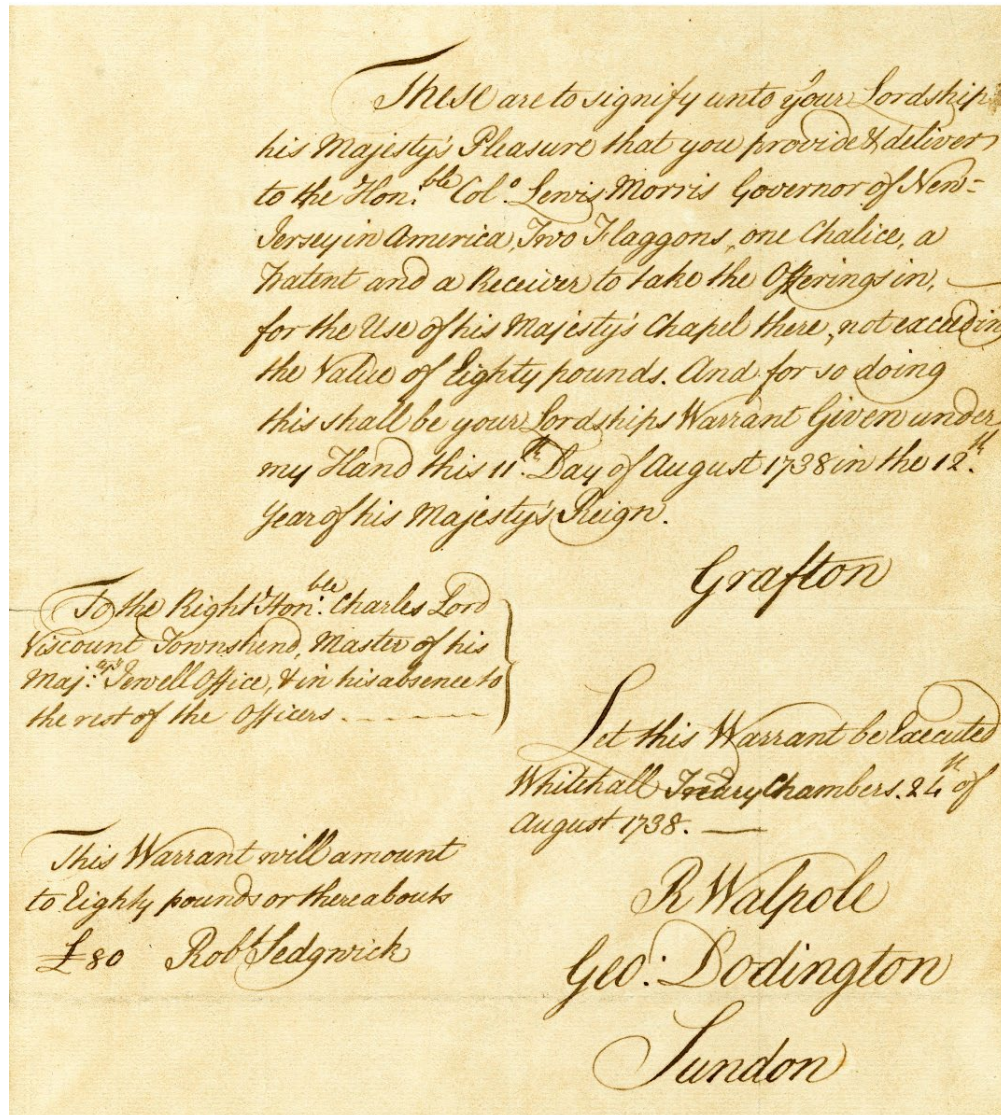 These are to signify unto your Lordship
his Majesty's Pleasure that you provide & deliver
to the Hon:ble Col:o Lewis Morris Governor of New=
Jersey in America, Two Flaggons, one Chalice, a
Patent and a Receiver to take the Offerings in,
for the Use of his Majesty's Chapel there, not exceeding
the Value of Eighty pounds. And for so doing
this shall be your Lordships Warrant Given under
my Hand this 11th Day of August 1738 in the 12th
Year of his Majesty's Reign.
Grafton
To the Right Hon:ble Charles Lord
Viscount Townshend, Master of his
Maj:tys Jewell Office, & in his absence to
the rest of the Officers
Let this Warrant be Executed
Whitehall Treary Chambers. 24th of
August 1738.
This Warrant will amount
to Eighty pounds or thereabouts
£80 Robt Sedgwick
R Walpole
Geo: Dodington
Sundon